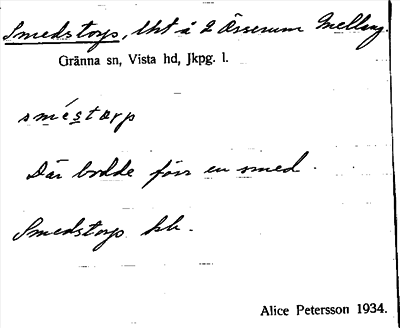 Smedstorp, lht å 2 Össerum Mellang.
Gränna sn, Vista hd, Jkpg. l.
sméstorp
Där bodde förr en smed.
Smedstorp hk.
Alice Petersson 1934.